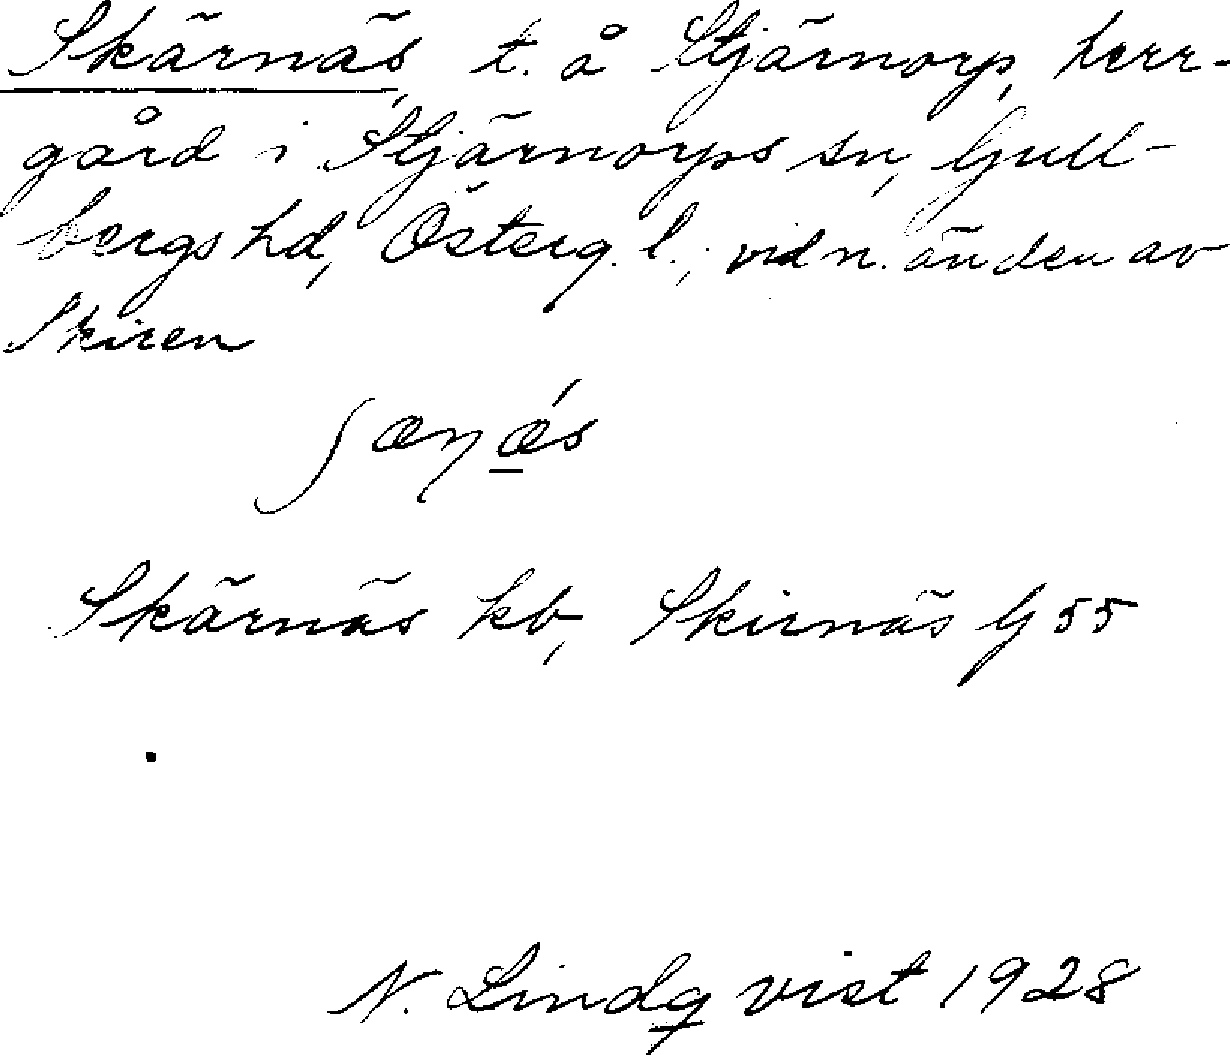 Skärnäs, t. å Stjärnorp, herr-
gård i Stjärnorps sn, Gull-
bergs hd, Österg. l.; vid n. änden av
Skiren
ʃæɳǽ̱s
Skärnäs kb, Skirnäs G 55
N. Lindqvist 1928